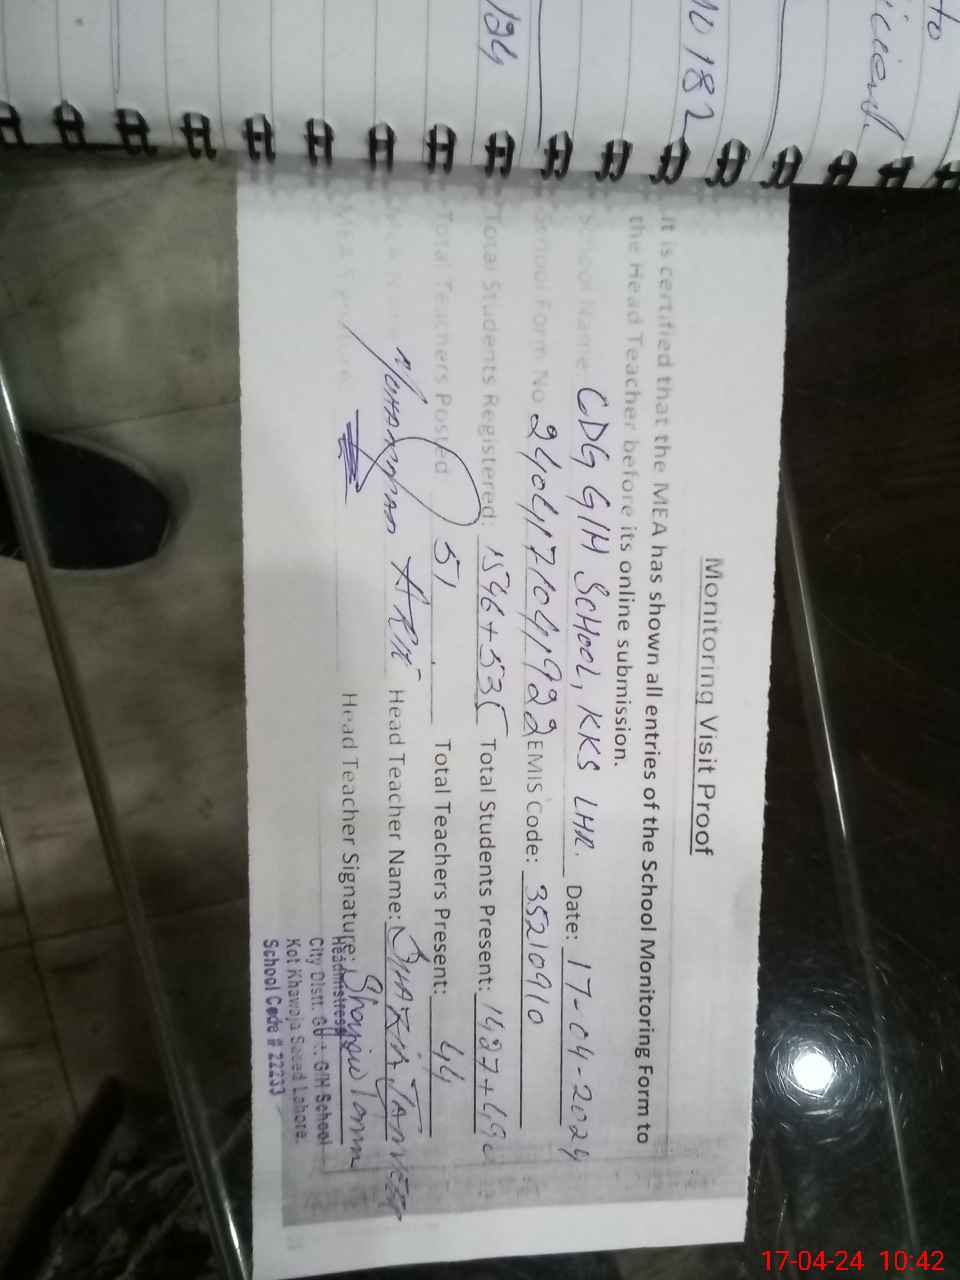 Monitoring Visit Proof
It is certified that the MEA has shown all entries of the School Monitoring Form to
the Head Teacher before its online submission.
School Name: CDG G/H SCHOOL, KKS LHR. Date: 17-04-2024
School Form No. 2404171041922 EMIS Code: 35210910
Total Students Registered: 1546+535 Total Students Present: 1427+490
Total Teachers Posted: 51 Total Teachers Present: 44
MEA Name: MUHAMMAD Head Teacher Name: SHAZIA TANVEER
MEA Signature: Head Teacher Signature:
Headmistress
City Distt. Govt. G/H School
Kot Khawaja Saeed Lahore.
School Code # 22233
to
10182
124
17-04-24 10:42